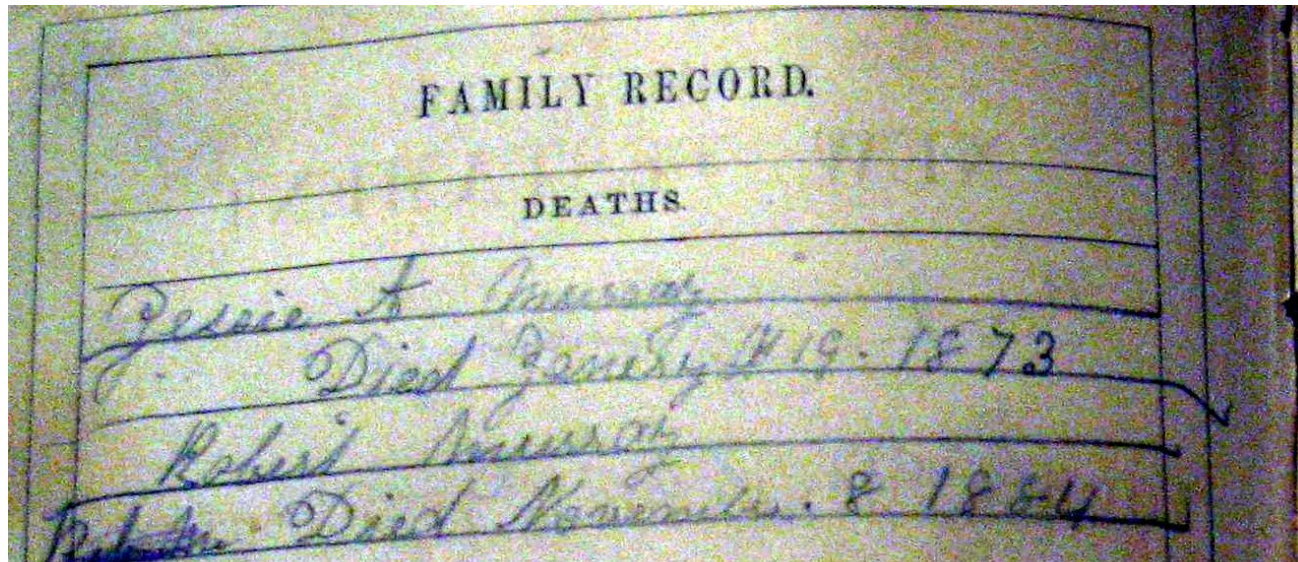 FAMILY RECORD.
DEATHS.
Jessie A Murray
Died 19. 1873
Robert Murray
Died November. 8 1884